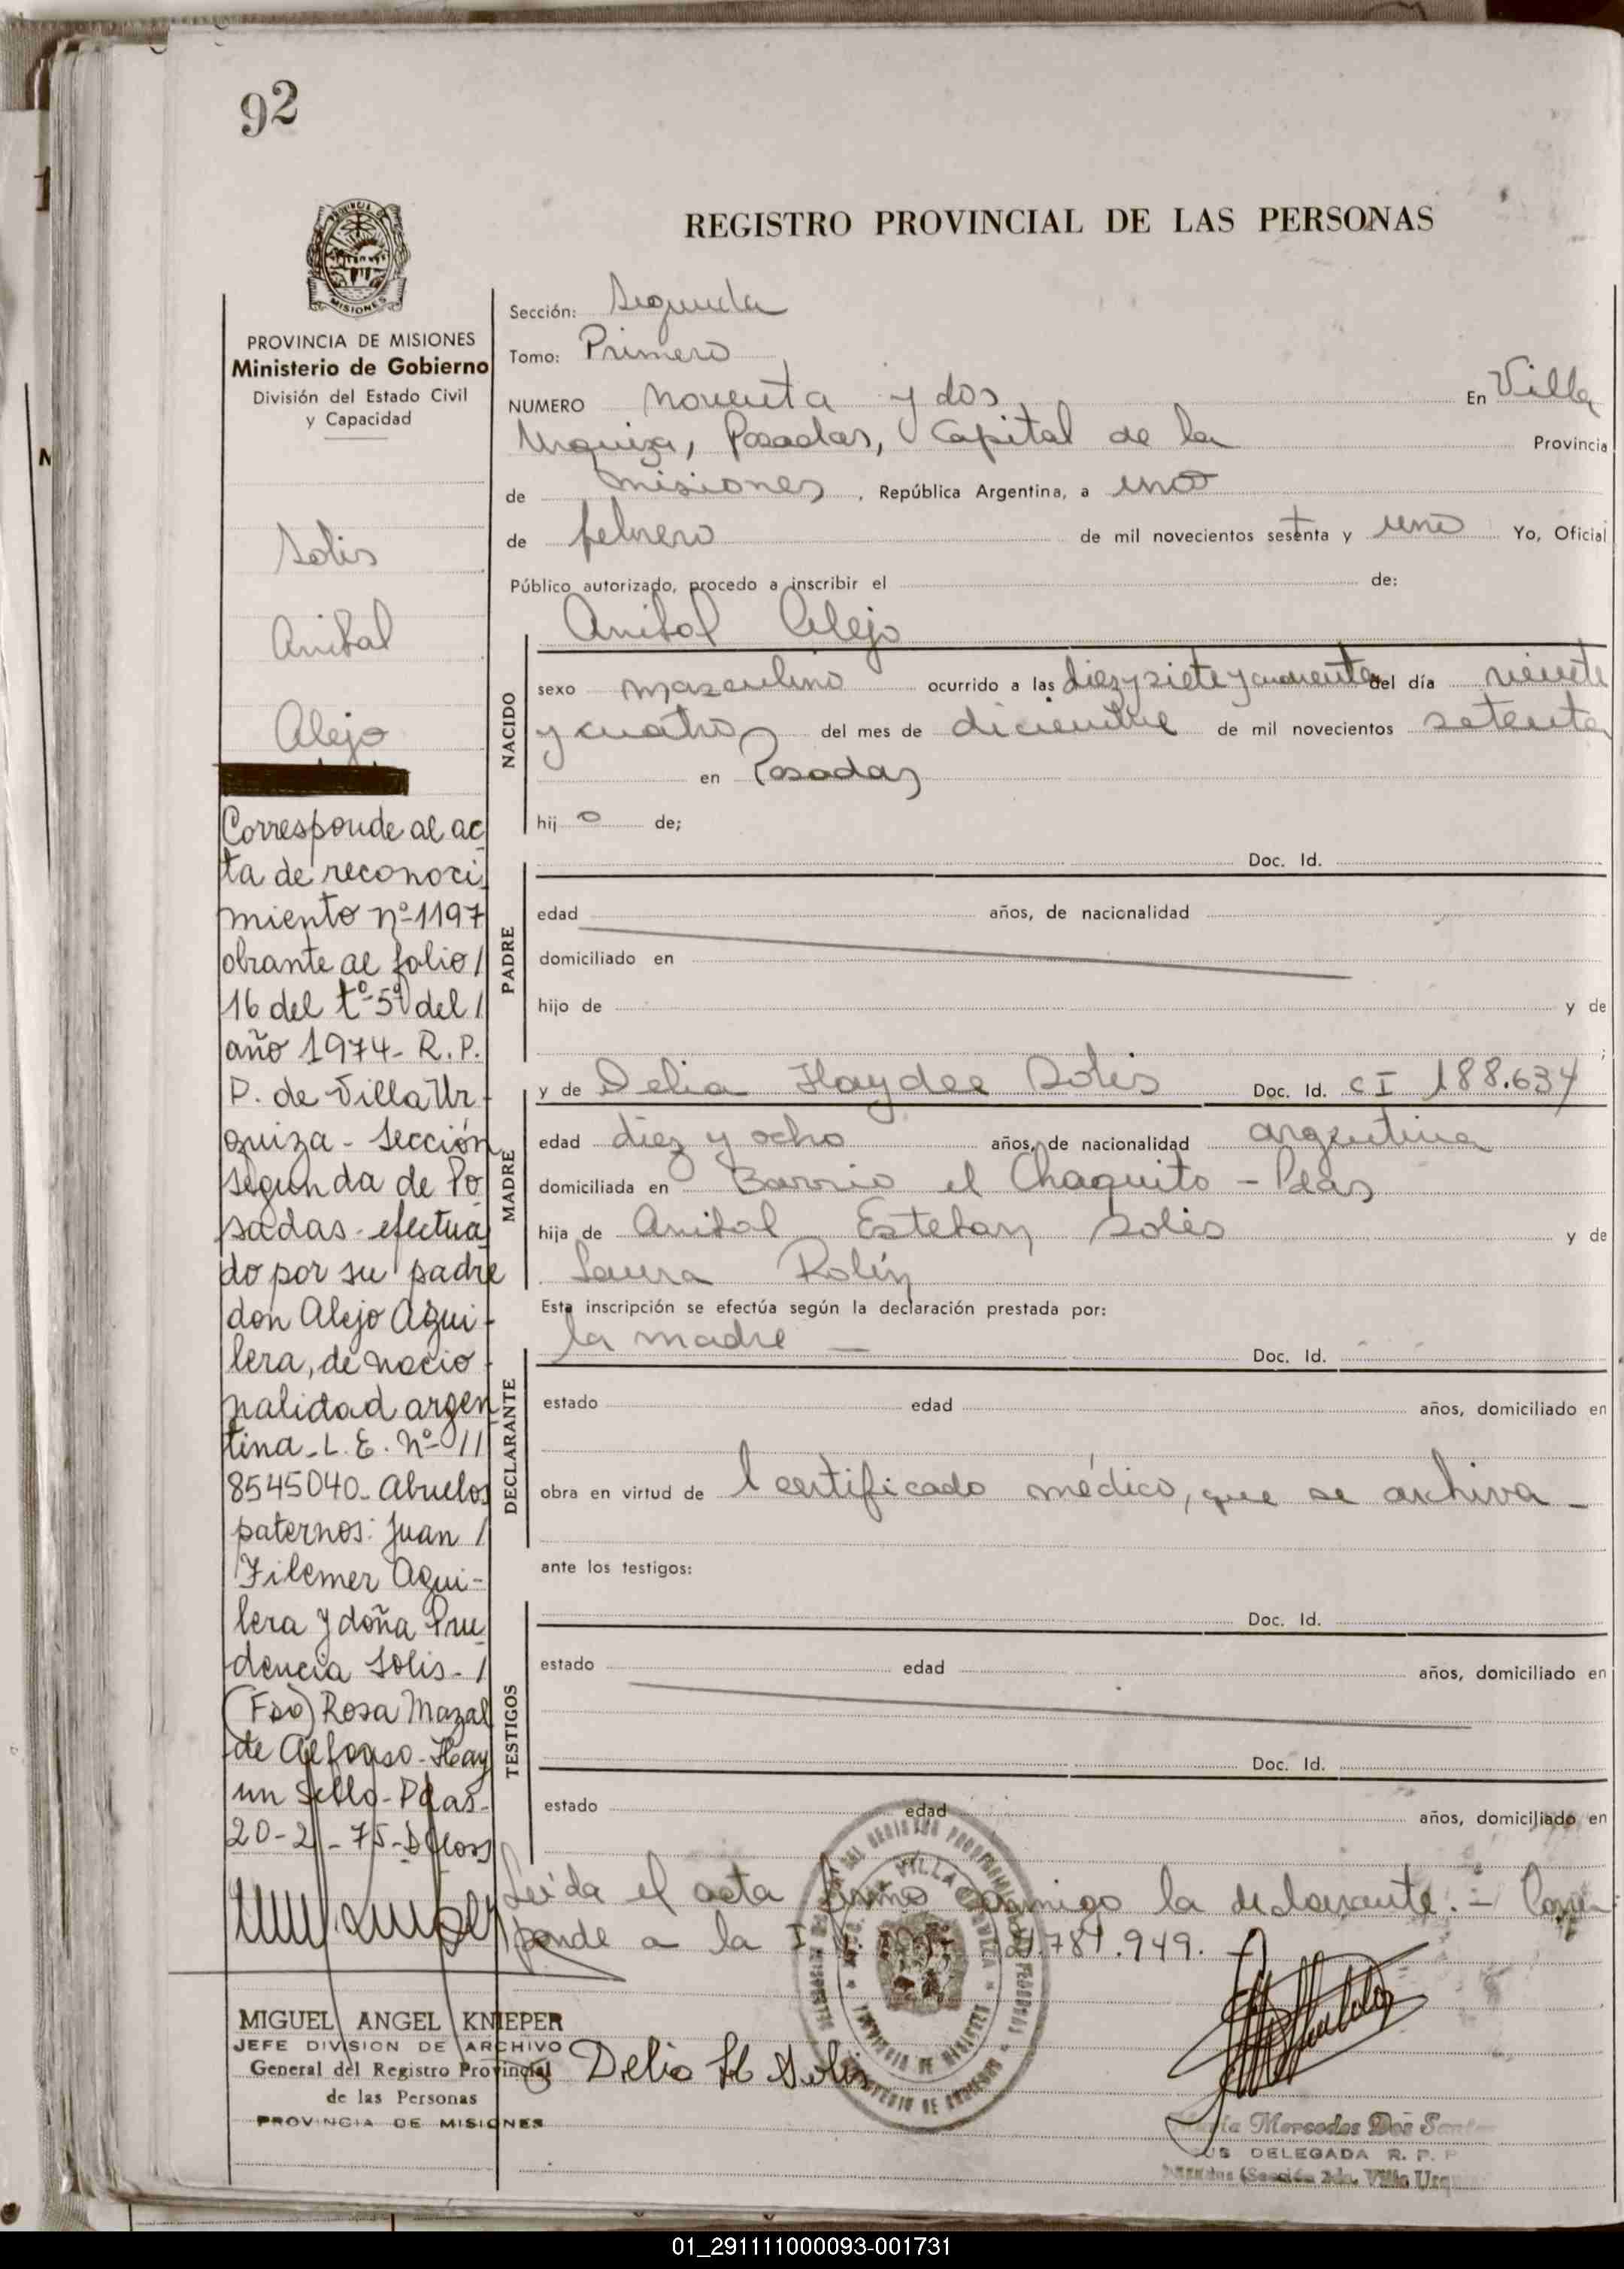 92
REGISTRO PROVINCIAL DE LAS PERSONAS
MISIONES
PROVINCIA DE MISIONES
Ministerio de Gobierno
División del Estado Civil
y Capacidad
Solis
Anibal
Alejo
Corresponde al ac
ta de reconoci
miento nº 1197
obrante al folio /
16 del tº 5º del /
año 1974- R.P.
P. de Villa Ur-
quiza - Sección
segunda de Po
sadas - efectua
do por su padre
don Alejo Agui-
lera, de nacio-
nalidad argen
tina - L.E. Nº //
8545040 - Abuelos
paternos: Juan /
Filemer Agui-
lera y doña Pru
dencia Solis - /
(Fdo) Rosa Mazal
de Alfonso - Hay
un Sello - Pdas -
20-2-75-
MIGUEL ANGEL KNIEPER
JEFE DIVISION DE ARCHIVO
General del Registro Provincial
de las Personas
PROVINCIA DE MISIONES
Sección: Segunda
Tomo: Primero
NUMERO noventa y dos En Villa
Urquiza, Posadas, Capital de la Provincia
de Misiones, República Argentina, a uno
de febrero de mil novecientos setenta y uno Yo, Oficial
Público autorizado, procedo a inscribir el de:
Anibal Alejo
NACIDO
sexo masculino ocurrido a las diez y siete y cuarenta del día veinte
y cuatro del mes de diciembre de mil novecientos setenta
en Posadas
hij o de;
Doc. Id.
PADRE
edad años, de nacionalidad
domiciliado en
hijo de y de
;
MADRE
y de Delia Haydee Solis Doc. Id. CI 188.634
edad diez y ocho años, de nacionalidad argentina
domiciliada en Barrio el Chaquito - Pdas
hija de Anibal Esteban Solis y de
Laura Rolín
Esta inscripción se efectúa según la declaración prestada por:
la madre — Doc. Id.
DECLARANTE
estado edad años, domiciliado en
obra en virtud de l certificado médico, que se archiva -
ante los testigos:
Doc. Id.
TESTIGOS
estado edad años, domiciliado en
Doc. Id.
estado edad años, domiciliado en
Leída el acta firma conmigo la declarante. - Corres
ponde a la 781.949. -
Delia H Solis
Mercedes Dos
DELEGADA R. P. P
(Sección 2da. Villa Urq
01_291111000093-001731